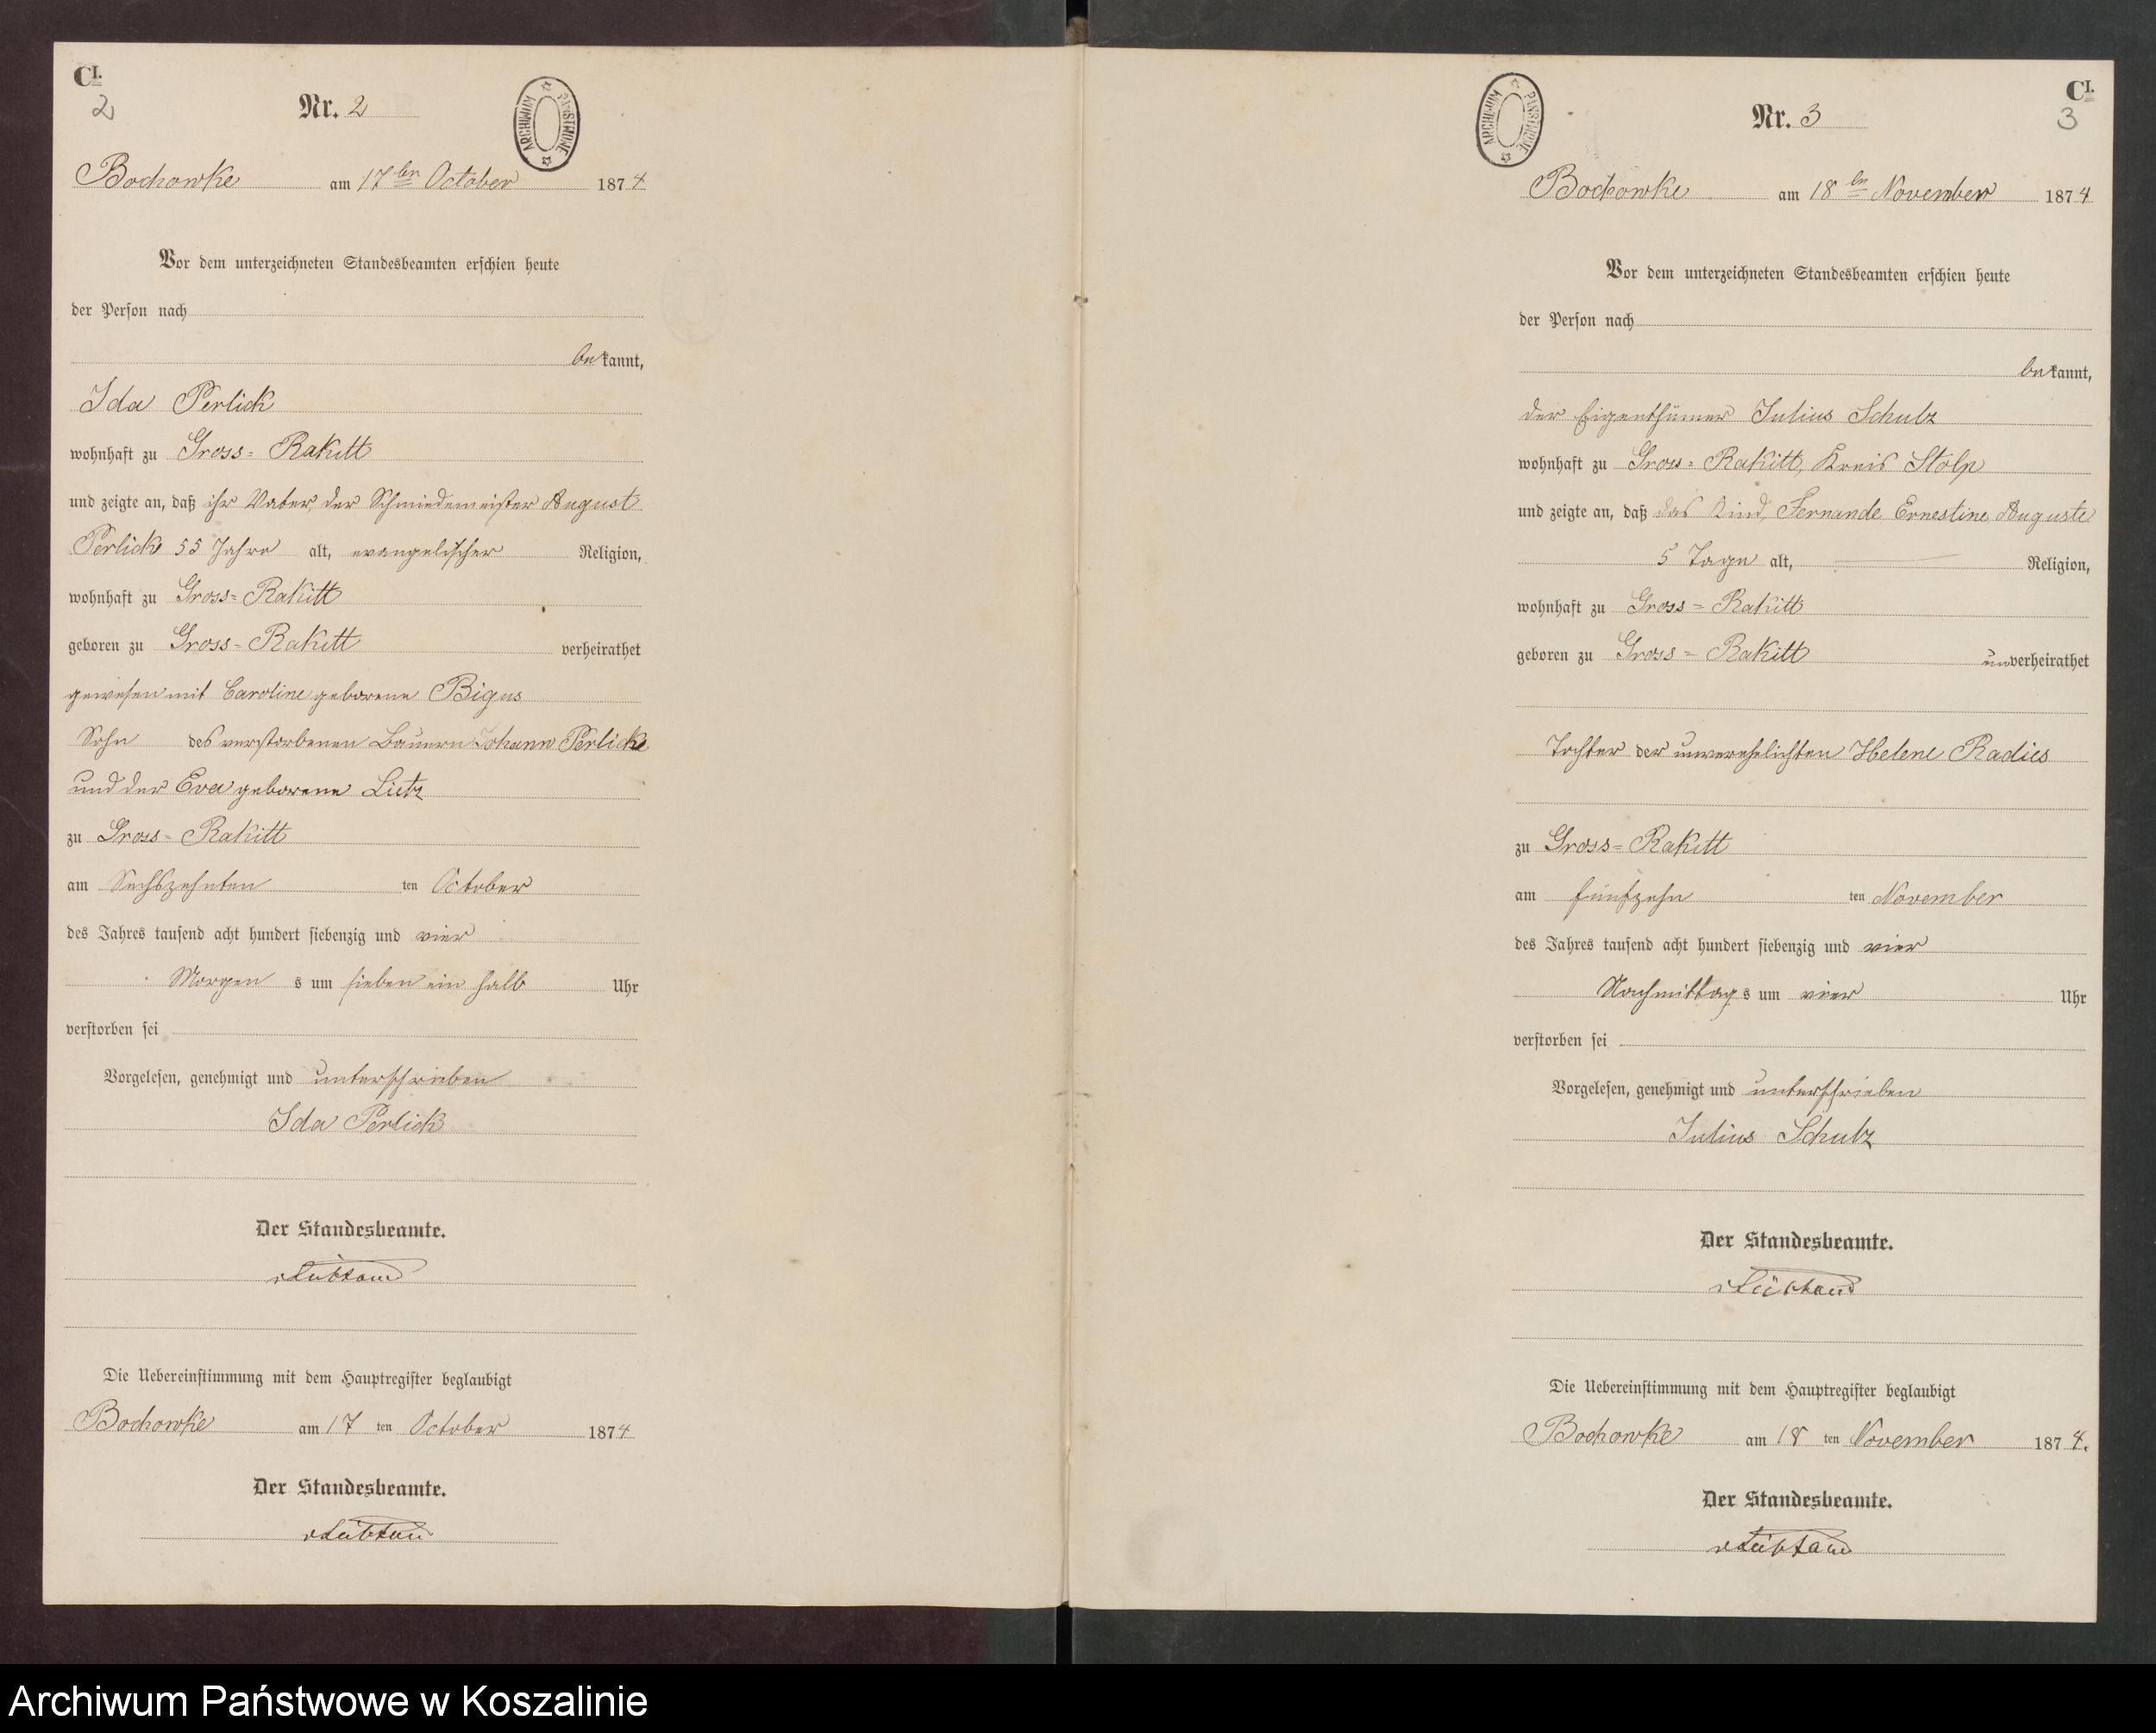 C I.
2
Nr. 2
ARCHIWUM PAŃSTWOWE
Bochowke am 17ten October 1874
Vor dem unterzeichneten Standesbeamten erschien heute
der Person nach
bekannt,
Ida Perlick
wohnhaft zu Gross-Rakitt
und zeigte an, daß ihr Vater, der Schmiedemeister August
Perlick 55 Jahre alt, evangelischer Religion,
wohnhaft zu Gross-Rakitt
geboren zu Gross-Rakitt verheirathet
gewesen mit Caroline geborene Bigus
Sohn des verstorbenen Bauern Johann Perlick
und der Eva geborene Lietz
zu Gross-Rakitt
am Sechszehnten ten October
des Jahres tausend acht hundert siebenzig und vier
Morgen s um sieben ein halb Uhr
verstorben sei
Vorgelesen, genehmigt und unterschrieben
Ida Perlick
Der Standesbeamte.
Die Uebereinstimmung mit dem Hauptregister beglaubigt
Bochowke am 17 ten October 1874
Der Standesbeamte.
C I.
3
Nr. 3
ARCHIWUM PAŃSTWOWE
Bochowke am 18ten November 1874
Vor dem unterzeichneten Standesbeamten erschien heute
der Person nach
bekannt,
der Eigenthümer Julius Schulz
wohnhaft zu Gross-Rakitt, Kreis Stolp
und zeigte an, daß das Kind, Fernande Ernestine Auguste
5 Tage alt, Religion,
wohnhaft zu Gross-Rakitt
geboren zu Gross-Rakitt unverheirathet
Tochter der unverehelichten Helene Radies
zu Gross-Rakitt
am fünfzehn ten November
des Jahres tausend acht hundert siebenzig und vier
Nachmittag s um vier Uhr
verstorben sei
Vorgelesen, genehmigt und unterschrieben
Julius Schulz
Der Standesbeamte.
Die Uebereinstimmung mit dem Hauptregister beglaubigt
Bochowke am 18 ten November 1874.
Der Standesbeamte.
Archiwum Państwowe w Koszalinie